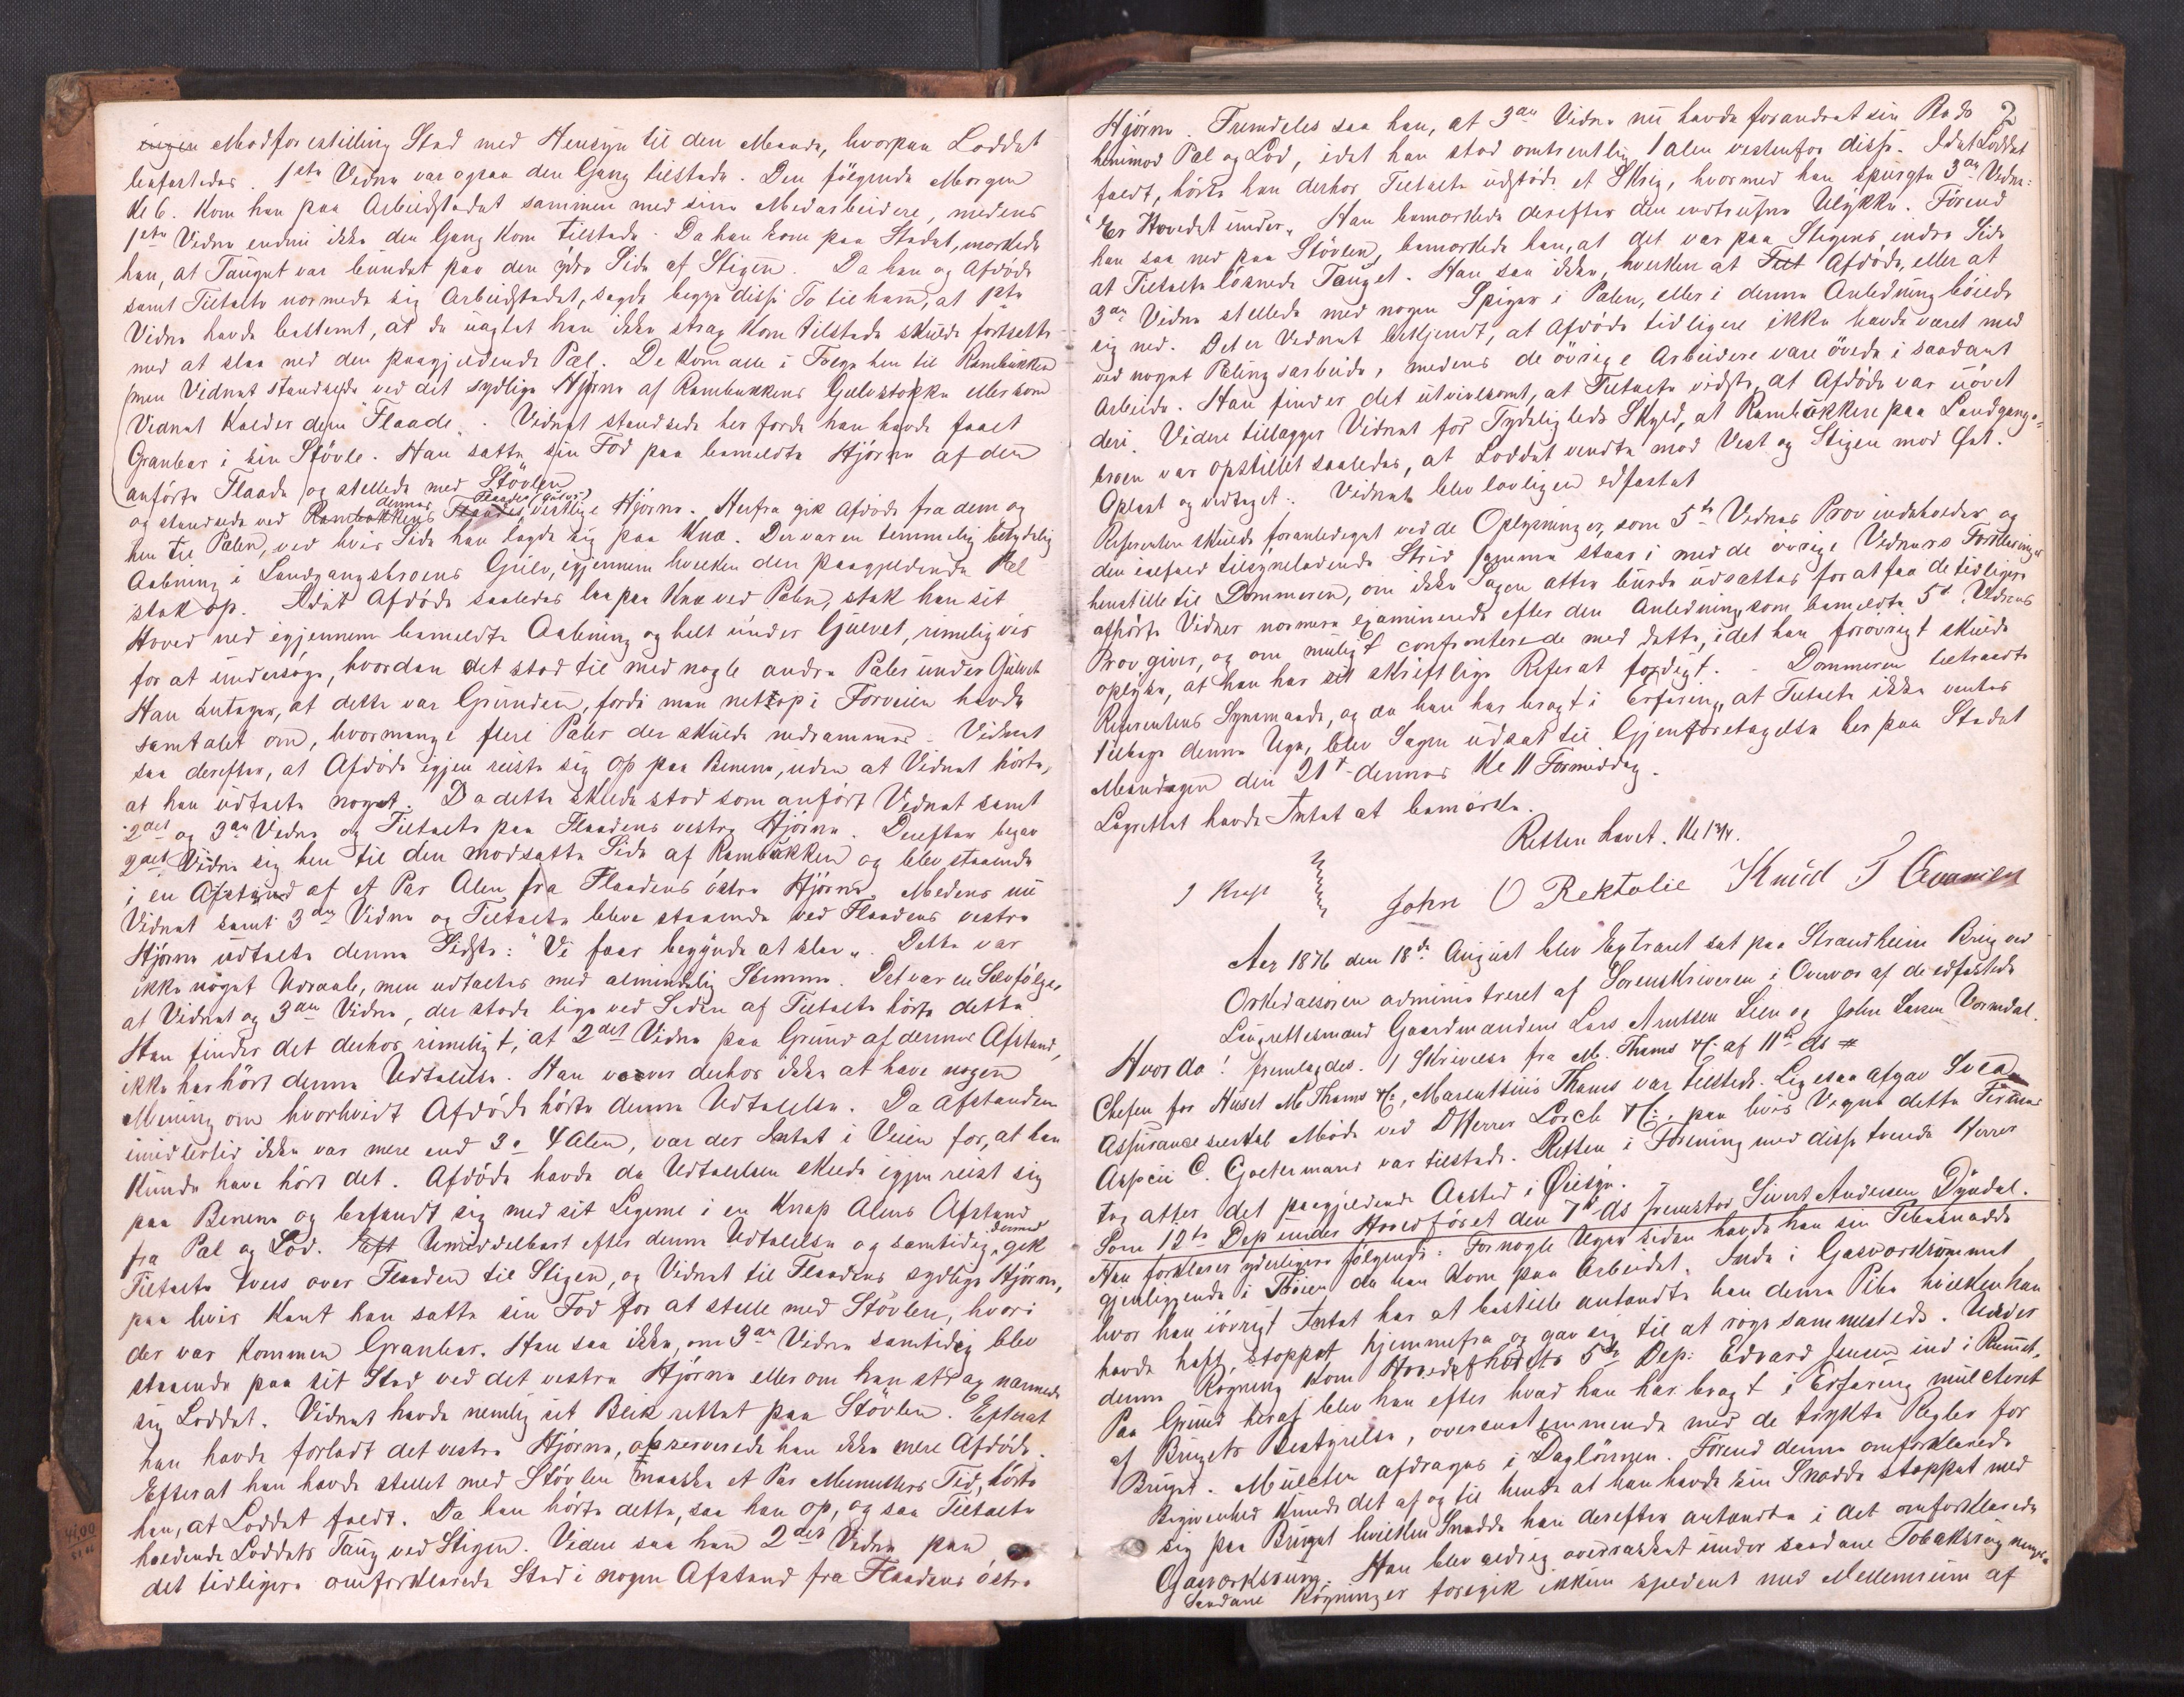 ingen Modforestilling Sted med Hensyn til den Maade, hvorpaa Loddet
befæstedes. 1ste Vidne var ogsaa den Gang tilstede. Den følgende Morgen
Kl 6. kom han paa Arbeidsstedet sammen med sine Medarbeidere, medens
1ste Vidne endnu ikke den Gang kom tilstede. Da han kom paa Stedet, mærkede
han, at Tauget var bundet paa den ydre Side af Stigen. Da han og Afdøde
samt Tiltalte nærmede sig Arbeidsstedet, sagde begge disse To til ham, at 1ste
Vidne havde bestemt, at de uagtet han ikke strax kom tilstede skulde fortsætte
med at slaa ned den paagjeldende Pæl. De kom alle i Følge hen til Rambukken
men Vidnet standsede ved det sydlige Hjørne af Rambukkens Gulvstokke eller som
Vidnet kalder dem "Flaade". Vidnet standsede her fordi han havde faaet
Granbar i sin Støvle. Han satte sin Fod paa bemeldte Hjørne af den
anførte Flaade og stellede med Støvlen
og standsede ved Rambukkens dennes Flaades Flaades (Gulvs) vestlige Hjørne. Herfra gik Afdøde fra dem og
hen til Pælen, ved hvis Side han lagde sig paa Knæ. Der var en temmelig betydelig
Aabning i Landgangsbroens Gulv, igjennem hvilken den paagjeldende Pæl
stak op. Idet Afdøde saaledes laa paa Knæ ved Pælen, stak han sit
Hoved ned igjennem bemeldte Aabning og helt under Gulvet, rimeligvis
for at undersøge, hvordan det stod til med nogle andre Pæler under Gulvet
Han antager, at dette var Grunden, fordi man netop i Forveien havde
samtalet om, hvormange flere Pæler der skulde nedrammes. Vidnet
saa derefter, at Afdøde igjen reiste sig op paa Benene, uden at Vidnet hørte,
at han udtalte noget. Da dette skede stod som anført Vidnet samt
2det og 3die Vidne og Tiltalte paa Flaadens vestre Hjørne. Derefter begav
2det Vidne sig hen til den modsatte Side af Rambukken og blev staaende
i en Afstand af et Par Alen fra Flaadens østre Hjørne. Medens nu
Vidnet samt 3die Vidne og Tiltalte bleve staaende ved Flaadens vestre
Hjørne udtalte denne Sidste: "Vi faar begynde at slaa". Dette var
ikke noget Udraab, men udtaltes med almindelig Stemme. Det var en Selvfølge
at Vidnet og 3die Vidne, der stode lige ved Siden af Tiltalte hørte dette.
Han finder det derhos rimeligt, at 2det Vidne paa Grund af dennes Afstand,
ikke har hørt denne Udtalelse. Han vover derhos ikke at have nogen
Mening om hvorvidt Afdøde hørte denne Udtalelse. Da Afstanden
imidlertid ikke var mere end 3 a 4 Alen, var der Intet i Veien for, at han
kunde have hørt det. Afdøde havde da Udtalelsen skede igjen reist sig
paa Benene og befandt sig med sit Legeme i en knap Alens Afstand
fra Pæl og Lod. Eft Umiddelbart efter denne Udtalelse og samtidig dermed gik
Tiltalte tvers over Flaaden til Stigen, og Vidnet til Flaadens sydlige Hjørne,
paa hvis Kant han satte sin Fod for at stelle med Støvlen, hvori
der var kommen Granbar. Han saa ikke, om 3die Vidne samtidig blev
staaende paa sit Sted ved det vestre Hjørne eller om han strax nærmede
sig Loddet. Vidnet havde nemlig sit Blik rettet paa Støvlen. Efterat
han havde forladt det vestre Hjørne, observerede han ikke mere Afdøde.
Efterat han havde stellet med Støvlen maaske et Par Minutters Tid, hørte
han, at Loddet faldt. Da han hørte dette, saa han op, og saa Tiltalte
holdende Loddets Taug ved Stigen. Videre saa han 2det Vidne paa
det tidligere omforklarede Sted i nogen Afstand fra Flaadens østre
2
Hjørne. Fremdeles saa han, at 3die Vidne nu havde forandret sin Plads
henimod Pæl og Lod, idet han stod omtrentlig 1 Alen vestenfor disse. Idet Loddet
faldt, hørte han derhos Tiltalte udstøde et Skrig, hvormed han spurgte 3die Vidne:
"Er Hovedet under". Han bemærkede derefter den indtrufne Ulykke. Førend
han saa ned paa Støvlen, bemærkede han, at det var paa Stigens indre Side
at Tiltalte løsnede Tauget. Han saa ikke, hverken at Tilt Afdøde, eller at
3die Vidne stellede med nogen Spiger i Pælen, eller i denne Anledning bøiede
sig ned. Det er Vidnet bekjendt, at Afdøde tidligere ikke havde været med
ved noget Pælingsarbeide, medens de øvrige Arbeidere vare øvede i saadant
Arbeide. Han finder det utvivlsomt, at Tiltalte vidste, at Afdøde var uøvet
deri. Videre tillægger Vidnet for Tydeligheds Skyld, at Rambukken paa Landgangs-
broen var opstillet saaledes, at Loddet vendte mod Vest og Stigen mod Øst.
Oplæst og vedtaget. Vidnet blev lovligen edfæstet
Referenten skulde foranlediget ved de Oplysninger, som 5te Vidnes Prov indeholder og
den ialfald tilsyneladende Strid samme staar i med de øvrige Vidners Forklaringer
henstille til Dommeren, om ikke Sagen atter burde udsættes for at faa de tidligere
afhørte Vidner nærmere examinerede efter den Anledning, som bemeldte 5te Vidnes
Prov giver, og om muligt confronterede med dette, idet han forøvrigt skulde
oplyse, at han har sit skriftlige Referat færdigt. - Dommeren tiltraadte
Referentens Synsmaade, og da han har bragt i Erfaring, at Tiltalte ikke ventes
tilbage denne Uge, blev Sagen udsat til Gjenforetagelse her paa Stedet
Mandagen den 21de dennes Kl 11 Formiddag.
Lagrettet havde Intet at bemærke.
Retten hævet.
John O Rektolie Knud T
Aar 1876 den 18de August blev Extraret sat paa Strandheim Brug ved
Orkedalsøren administreret af Sorenskriveren i Overvær af de edfæstede
Laugrettesmænd Gaardmændene Lars Arntsen Lien og John Larsen Vormdal.
Hvorda! fremlagdes. 1 Skrivelse fra M. Thams & C. af 11te ds
Chefen for Huset M. Thams & C:, Marentius Thams var tilstede. Ligesaa afgav Svea
Assuranceselskab Møde ved DHerrer Lorck & C:, paa hvis Vegne dette Firmas
Associé C. Goetermann var tilstede. Retten i Forening med disse tvende Herrer
tog atter det paagjeldende Aasted i Øiesyn.
Som 12te Dep under Hovedforet den 7de ds fremstod Sivert Andersen Dyndal.
Han forklarer yderligere følgende: For nogle Uger siden havde han sin Pibesnadde
gjenliggende i Trøien da han kom paa Arbeidet. Inde i Gasværkrummet
hvor han iøvrigt Intet har at bestille antændte han denne Pibe hvilken han
havde haft, stoppet hjemmefra og gav sig til at røge sammesteds. Under
denne Røgning kom Hovedforets 5te Dep: Edvard Jensen ind i Rummet.
Paa Grund heraf blev han efter hvad han har bragt i Erfaring mulcteret
af Brugets Bestyrelse, overensstemmende med de trykte Regler for
Bruget. Mulcten afdrages i Daglønnen. Førend denne omforklarede
Begivenhed kunde det af og til hende at han havde sin Snadde stoppet med
sig paa Bruget hvilken Snadde han derefter antændte i det omforklarede
Gasværksrum. Han blev aldrig overrasket under saadane Tobaksrøgninger
Saadane Røgninger foregik ikkun sjeldent med Mellemrum af